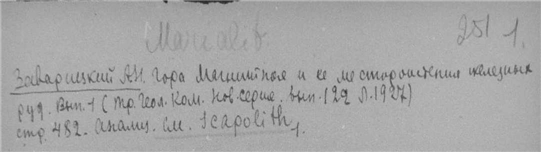 Marialit. 251 1.
Заварицкий А.Н. Гора Магнитная и ее месторождения железных
руд. Вып. 1 (Тр. Геол. Ком. Нов. серия. Вып. 122 Л. 1927)
стр. 482. анализ. см. Scapolith 1.